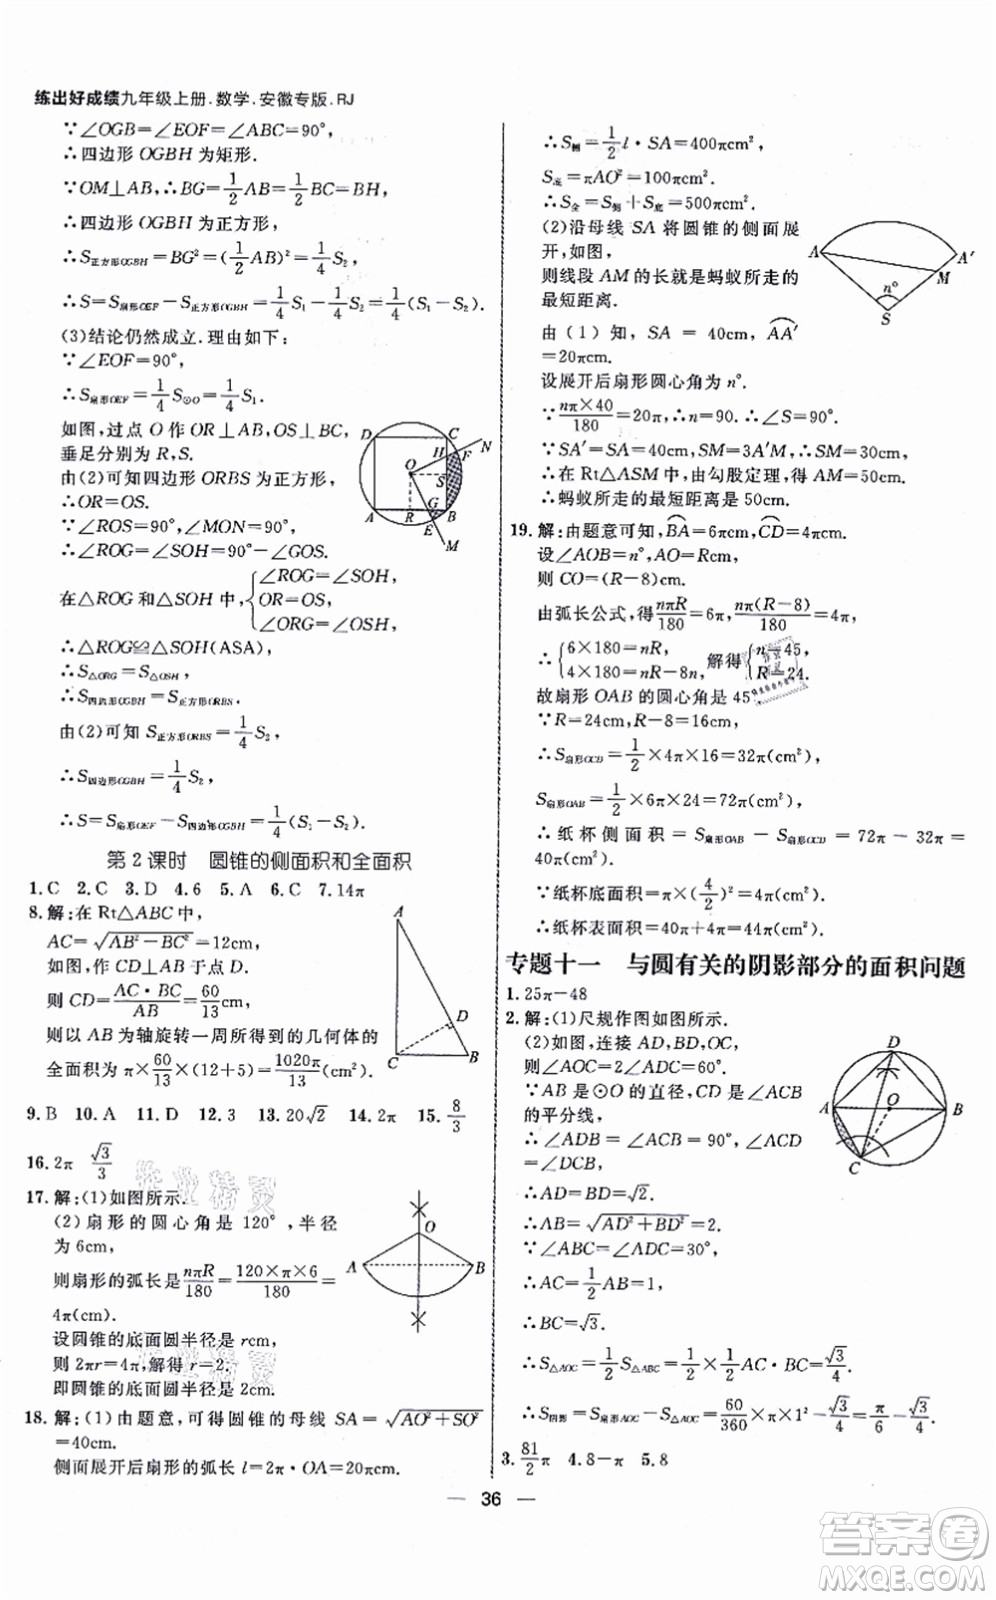 练出好成绩九年级上册.数学.安徽专版.RJ
∵∠OGB=∠EOF=∠ABC=90°,
∴四边形OGBH为矩形.
∵OM⊥AB,∴BG=1/2AB=1/2BC=BH,
∴四边形OGBH为正方形,
∴S正方形OGBH=BG²=(1/2AB)²=1/4S₂,
∴S=S扇形OEF-S正方形OGBH=1/4S₁-1/4S₂=1/4(S₁-S₂).
(3)结论仍然成立.理由如下:
∵∠EOF=90°,
∴S扇形OEF=1/4S⊙O=1/4S₁.
如图,过点O作OR⊥AB,OS⊥BC,
垂足分别为R,S.
由(2)可知四边形ORBS为正方形,
∴OR=OS.
∵∠ROS=90°,∠MON=90°,
∴∠ROG=∠SOH=90°-∠GOS.
在△ROG和△SOH中,{∠ROG=∠SOH,
OR=OS,
∠ORG=∠OSH,
∴△ROG≌△SOH(ASA),
∴S△ORG=S△OSH,
∴S四边形OGBH=S正方形ORBS.
由(2)可知S正方形ORBS=1/4S₂,
∴S四边形OGBH=1/4S₂,
∴S=S扇形OEF-S四边形OGBH=1/4(S₁-S₂).
D C N H F O S G A R B E M
第2课时 圆锥的侧面积和全面积
1.C 2.C 3.D 4.6 5.A 6.C 7.14π
8.解:在Rt△ABC中,
AC=√(AB²-BC²)=12cm,
如图,作CD⊥AB于点D.
CD=AC·BC/AB=60/13cm,
则以AB为轴旋转一周所得到的几何体的
全面积为π×60/13×(12+5)=1020π/13cm².
A D C B
9.B 10.A 11.D 12.3 13.20√2 14.2π 15.8/3
16.2π √3/3
17.解:(1)如图所示.
(2)扇形的圆心角是120°,半径
为6cm,
则扇形的弧长是nπR/180=120×π×6/180=
4π(cm).
设圆锥的底面圆半径是rcm,
则2πr=4π,解得r=2.
即圆锥的底面圆半径是2cm.
O A B
18.解:(1)由题意,可得圆锥的母线SA=√(AO²+SO²)
=40cm.
侧面展开后扇形的弧长l=2π·OA=20πcm.
∴S侧=1/2l·SA=400πcm²,
S底=πAO²=100πcm².
∴S全=S侧+S底=500πcm².
(2)沿母线SA将圆锥的侧面展
开,如图,
则线段AM的长就是蚂蚁所走的
最短距离.
由(1)知,SA=40cm,AA′
=20πcm.
设展开后扇形圆心角为n°.
∵nπ×40/180=20π,∴n=90.∴∠S=90°.
∵SA′=SA=40cm,SM=3A′M,∴SM=30cm.
∴在Rt△ASM中,由勾股定理,得AM=50cm.
∴蚂蚁所走的最短距离是50cm.
A A′ M n° S
19.解:由题意可知,BA=6πcm,CD=4πcm.
设∠AOB=n°,AO=Rcm,
则CO=(R-8)cm.
由弧长公式,得nπR/180=6π,nπ(R-8)/180=4π,
∴{6×180=nR,
4×180=nR-8n,解得{n=45,
R=24.
故扇形OAB的圆心角是45°.
∵R=24cm,R-8=16cm,
∴S扇形OCD=1/2×4π×16=32π(cm²),
S扇形OAB=1/2×6π×24=72π(cm²).
∴纸杯侧面积=S扇形OAB-S扇形OCD=72π-32π=
40π(cm²).
∵纸杯底面积=π×(4/2)²=4π(cm²),
∴纸杯表面积=40π+4π=44π(cm²).
专题十一 与圆有关的阴影部分的面积问题
1.25π-48
2.解:(1)尺规作图如图所示.
(2)如图,连接AD,BD,OC,
则∠AOC=2∠ABC=60°.
∵AB是⊙O的直径,CD是∠ACB
的平分线,
∴∠ADB=∠ACB=90°,∠ACD
=∠DCB.
∴AD=BD=√2.
∴AB=√(AD²+BD²)=2.
∵∠ACB=90°,∠ABC=30°,
∴AC=1/2AB=1,
∴BC=√3.
∴S△AOC=1/2S△ABC=1/2×1/2AC·BC=√3/4.
∴S阴影=S扇形AOC-S△AOC=60/360×π×1²-√3/4=π/6-√3/4.
D A O B C
3.81/2π 4.8-π 5.8
36
作业精灵
作业精灵
答案卷
MXQE.COM